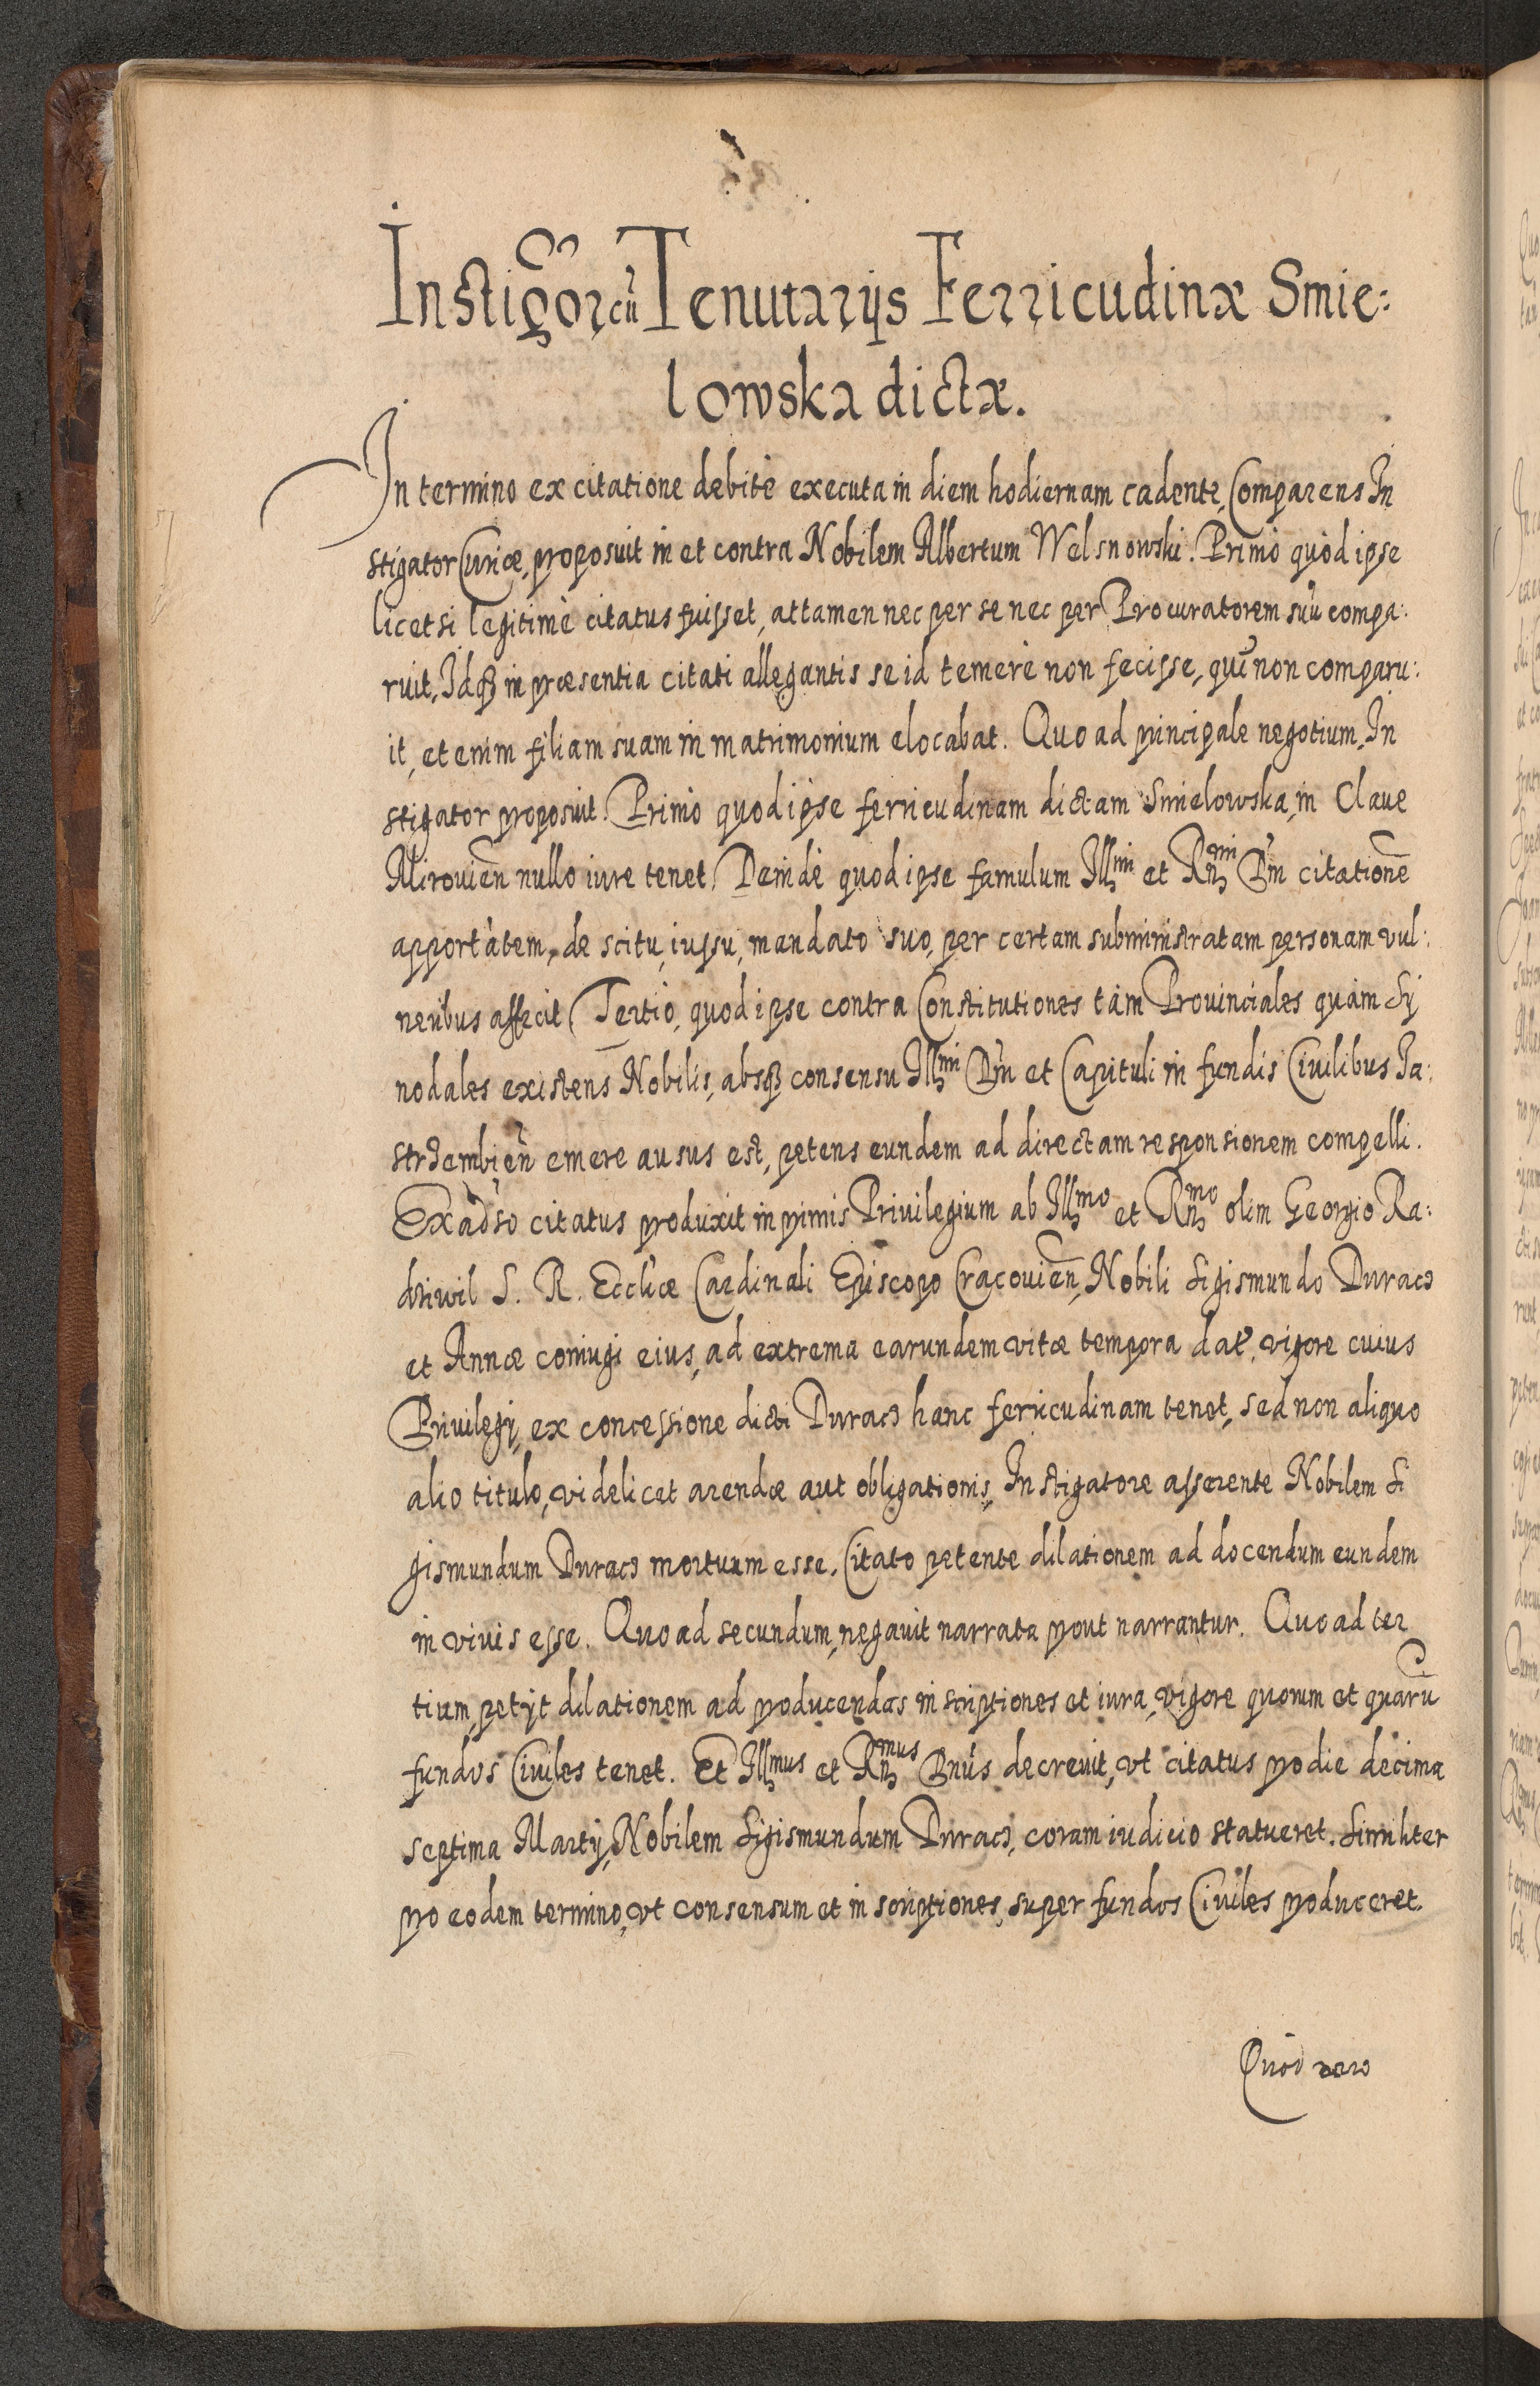 Instigor cū Tenutariis Ferricudinæ Smie:
lowska dictæ.
In termino ex citatione debitè executa in diem hodiernam cadente, Comparens In
stigator Curiæ, proposuit in et contra Nobilem Albertum Welsnowski. Primò quòd ipse
licet si legitimè citatus fuisset, attamen nec per se nec per Procuratorem suū compa:
ruit, Idqꝫ in præsentia citati allegantis se id temerè non fecisse, quē non comparu:
it, etenim filiam suam in matrimonium elocabat. Quo ad principale negotium, In
stigator proposuit. Primò quod ipse ferricudinam dictam Smielowska, in Claue
Mirouien̄ nullo iure tenet. Deindè quod ipse famulum Illmi et Rn̄mi Dn̄i citationē
apportātem, de scitu, iussu, mandato suo, per certam subministratam personam vul:
neribus affecit. Tertiò, quod ipse contra Constitutiones tàm Prouinciales quàm Sy
nodales existens Nobilis, absqꝫ consensu Illmi Dn̄i et Capituli in fundis Ciuilibus Ja:
strzembien̄ emere ausus est, petens eundem ad directam responsionem compelli.
Ex aduso citatus produxit in primis Priuilegium ab Illmo et Rn̄mo olim Georgio Ra:
dziwil S. R. Eccliæ Cardinali Episcopo Cracouien̄, Nobili Sigismundo Duracz
et Annæ coniugi eius, ad extrema earundem vitæ tempora dat̄, vigore cuius
Priuilegij, ex concessione dicti Duracz hanc ferricudinam tenet, sed non aliquo
alio titulo, videlicet arendæ aut obligationis, Instigatore asserente Nobilem Si
gismundum Duracz mortuum esse. Citato petente dilationem ad docendum eundem
in viuis esse. Quo ad secundum, negauit narrata prout narrantur. Quo ad ter
tium, petijt dilationem ad producendas inscriptiones et iura, vigore quorum et quarū
fundos Ciuiles tenet. Et Illmus et Rn̄mus Dn̄us decreuit, vt citatus pro die decima
septima Martij, Nobilem Sigismundum Duracz, coram iudicio statueret. Similiter
pro eodem termino, vt consensum et inscriptiones, super fundos Ciuiles produceret.
Quòd vero